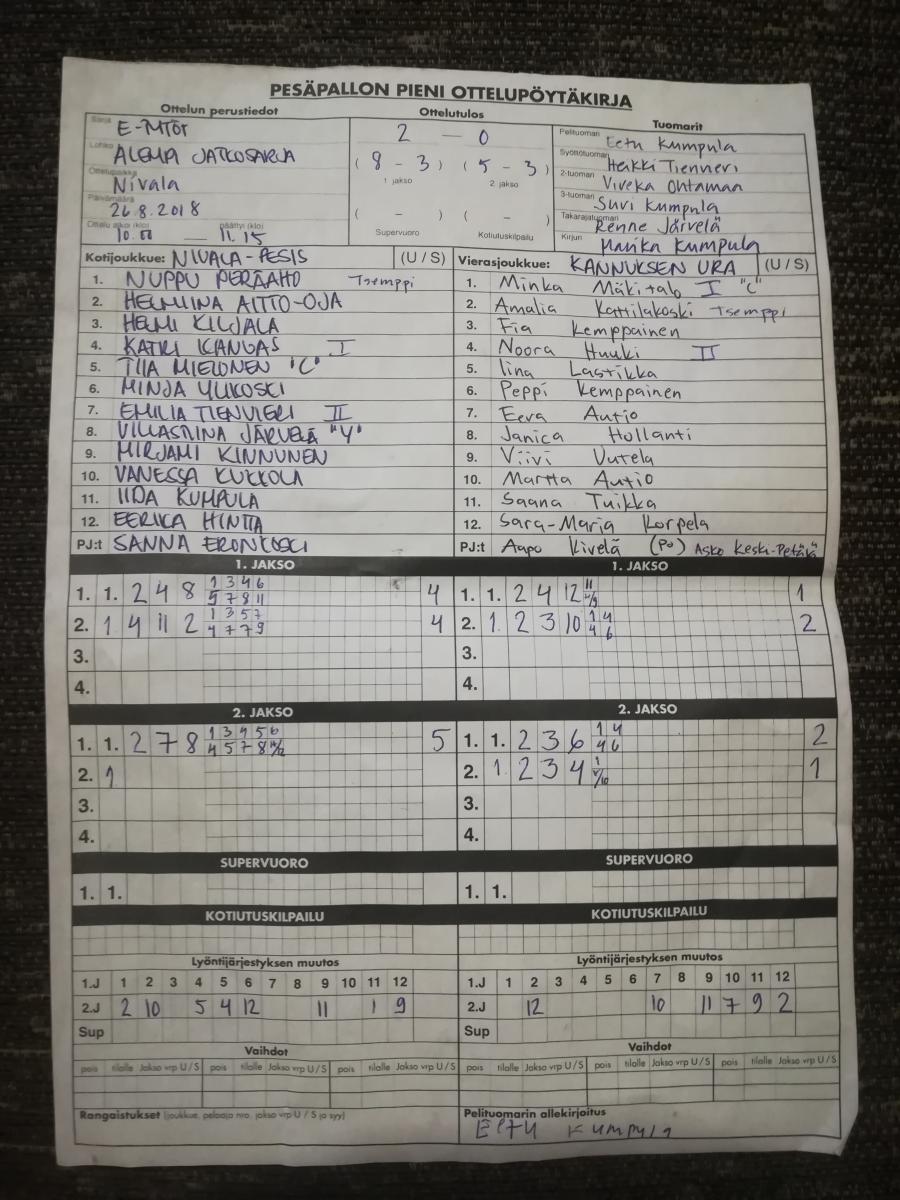 PESÄPALLON PIENI OTTELUPÖYTÄKIRJA
Ottelun perustiedot
Sarja E-tytöt
Lohko ALEMPI JATKOSARJA
Ottelupaikka Nivala
Päivämäärä 26.8.2018
Ottelu alkoi (klo) päättyi (klo)
10.00 — 11.15
Ottelutulos
2 — 0
(8 - 3) (5 - 3)
1 jakso 2 jakso
( - ) ( - )
Supervuoro Kotiutuskilpailu
Tuomarit
Pelituomari Eetu Kumpula
Syöttötuomari Heikki Tienneri
2-tuomari Viveka Ohtamaa
3-tuomari Suvi Kumpula
Takarajatuomari Renne Järvelä
Kirjuri Marika Kumpula
Kotijoukkue: NIVALA-PESIS (U / S)
1. NUPPU PERÄAHO Tsemppi
2. HELMIINA AITTO-OJA
3. HELMI KILJALA
4. KATRI KANGAS I
5. TIIA MIELONEN "C"
6. MINJA YLIKOSKI
7. EMILIA TIENVIERI II
8. VILLASTIINA JÄRVELÄ "Y"
9. MIRJAMI KINNUNEN
10. VANESSA KUKKOLA
11. IIDA KUMPULA
12. EERIKA HINTTA
PJ:t SANNA ERONKOSKI
Vierasjoukkue: KANNUKSEN URA (U / S)
1. Minka Mäkitalo I "C"
2. Amalia Kattilakoski Tsemppi
3. Fia Kemppainen
4. Noora Huuki II
5. Iina Lastikka
6. Peppi Kemppainen
7. Eeva Autio
8. Janica Hollanti
9. Viivi Uutela
10. Martta Autio
11. Saana Tuikka
12. Sara-Maria Korpela
PJ:t Aapo Kivelä (PO) Asko Keski-Petäjä
1. JAKSO
1. 1. 2 4 8 1 3 4 6 4
5 7 8 11
2. 1 4 11 2 1 3 5 7 4
4 7 7 9
3.
4.
1. JAKSO
1. 1. 2 4 12 11 1
2. 1. 2 3 10 1 4 2
4 6
3.
4.
2. JAKSO
1. 1. 2 7 8 1 3 4 5 6 5
4 5 7 8
2. 1
3.
4.
2. JAKSO
1. 1. 2 3 6 1 4 2
4 6
2. 1. 2 3 4 1 1
3.
4.
SUPERVUORO
1. 1.
SUPERVUORO
1. 1.
KOTIUTUSKILPAILU
KOTIUTUSKILPAILU
Lyöntijärjestyksen muutos
1.J 1 2 3 4 5 6 7 8 9 10 11 12
2.J 2 10 5 4 12 11 1 9
Sup
Lyöntijärjestyksen muutos
1.J 1 2 3 4 5 6 7 8 9 10 11 12
2.J 12 10 11 7 9 2
Sup
Vaihdot
pois tilalle Jakso vrp U / S pois tilalle Jakso vrp U / S pois tilalle Jakso vrp U / S
Vaihdot
pois tilalle Jakso vrp U / S pois tilalle Jakso vrp U / S pois tilalle Jakso vrp U / S
Rangaistukset (joukkue, pelaaja nro, jakso vrp U / S ja syy)
Pelituomarin allekirjoitus
Eetu Kumpula